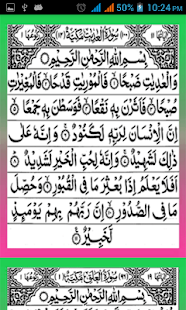 10:24 PM
سُوْرَةُ الْعٰدِيٰتِ مَكِّيَّةٌ
بِسْمِ اللّٰهِ الرَّحْمٰنِ الرَّحِيْمِ
وَالْعٰدِيٰتِ ضَبْحًا ۝ فَالْمُوْرِيٰتِ قَدْحًا ۝ فَالْمُغِيْرٰتِ
صُبْحًا ۝ فَاَثَرْنَ بِهٖ نَقْعًا ۝ فَوَسَطْنَ بِهٖ جَمْعًا ۝
اِنَّ الْاِنْسَانَ لِرَبِّهٖ لَكَنُوْدٌ ۝ وَاِنَّهٗ عَلٰى
ذٰلِكَ لَشَهِيْدٌ ۝ وَاِنَّهٗ لِحُبِّ الْخَيْرِ لَشَدِيْدٌ ۝
اَفَلَا يَعْلَمُ اِذَا بُعْثِرَ مَا فِى الْقُبُوْرِ ۝ وَحُصِّلَ
مَا فِى الصُّدُوْرِ ۝ اِنَّ رَبَّهُمْ بِهِمْ يَوْمَئِذٍ
لَّخَبِيْرٌ ۝
سُوْرَةُ الْعَلَقِ مَكِّيَّةٌ
بِسْمِ اللّٰهِ الرَّحْمٰنِ الرَّحِيْمِ